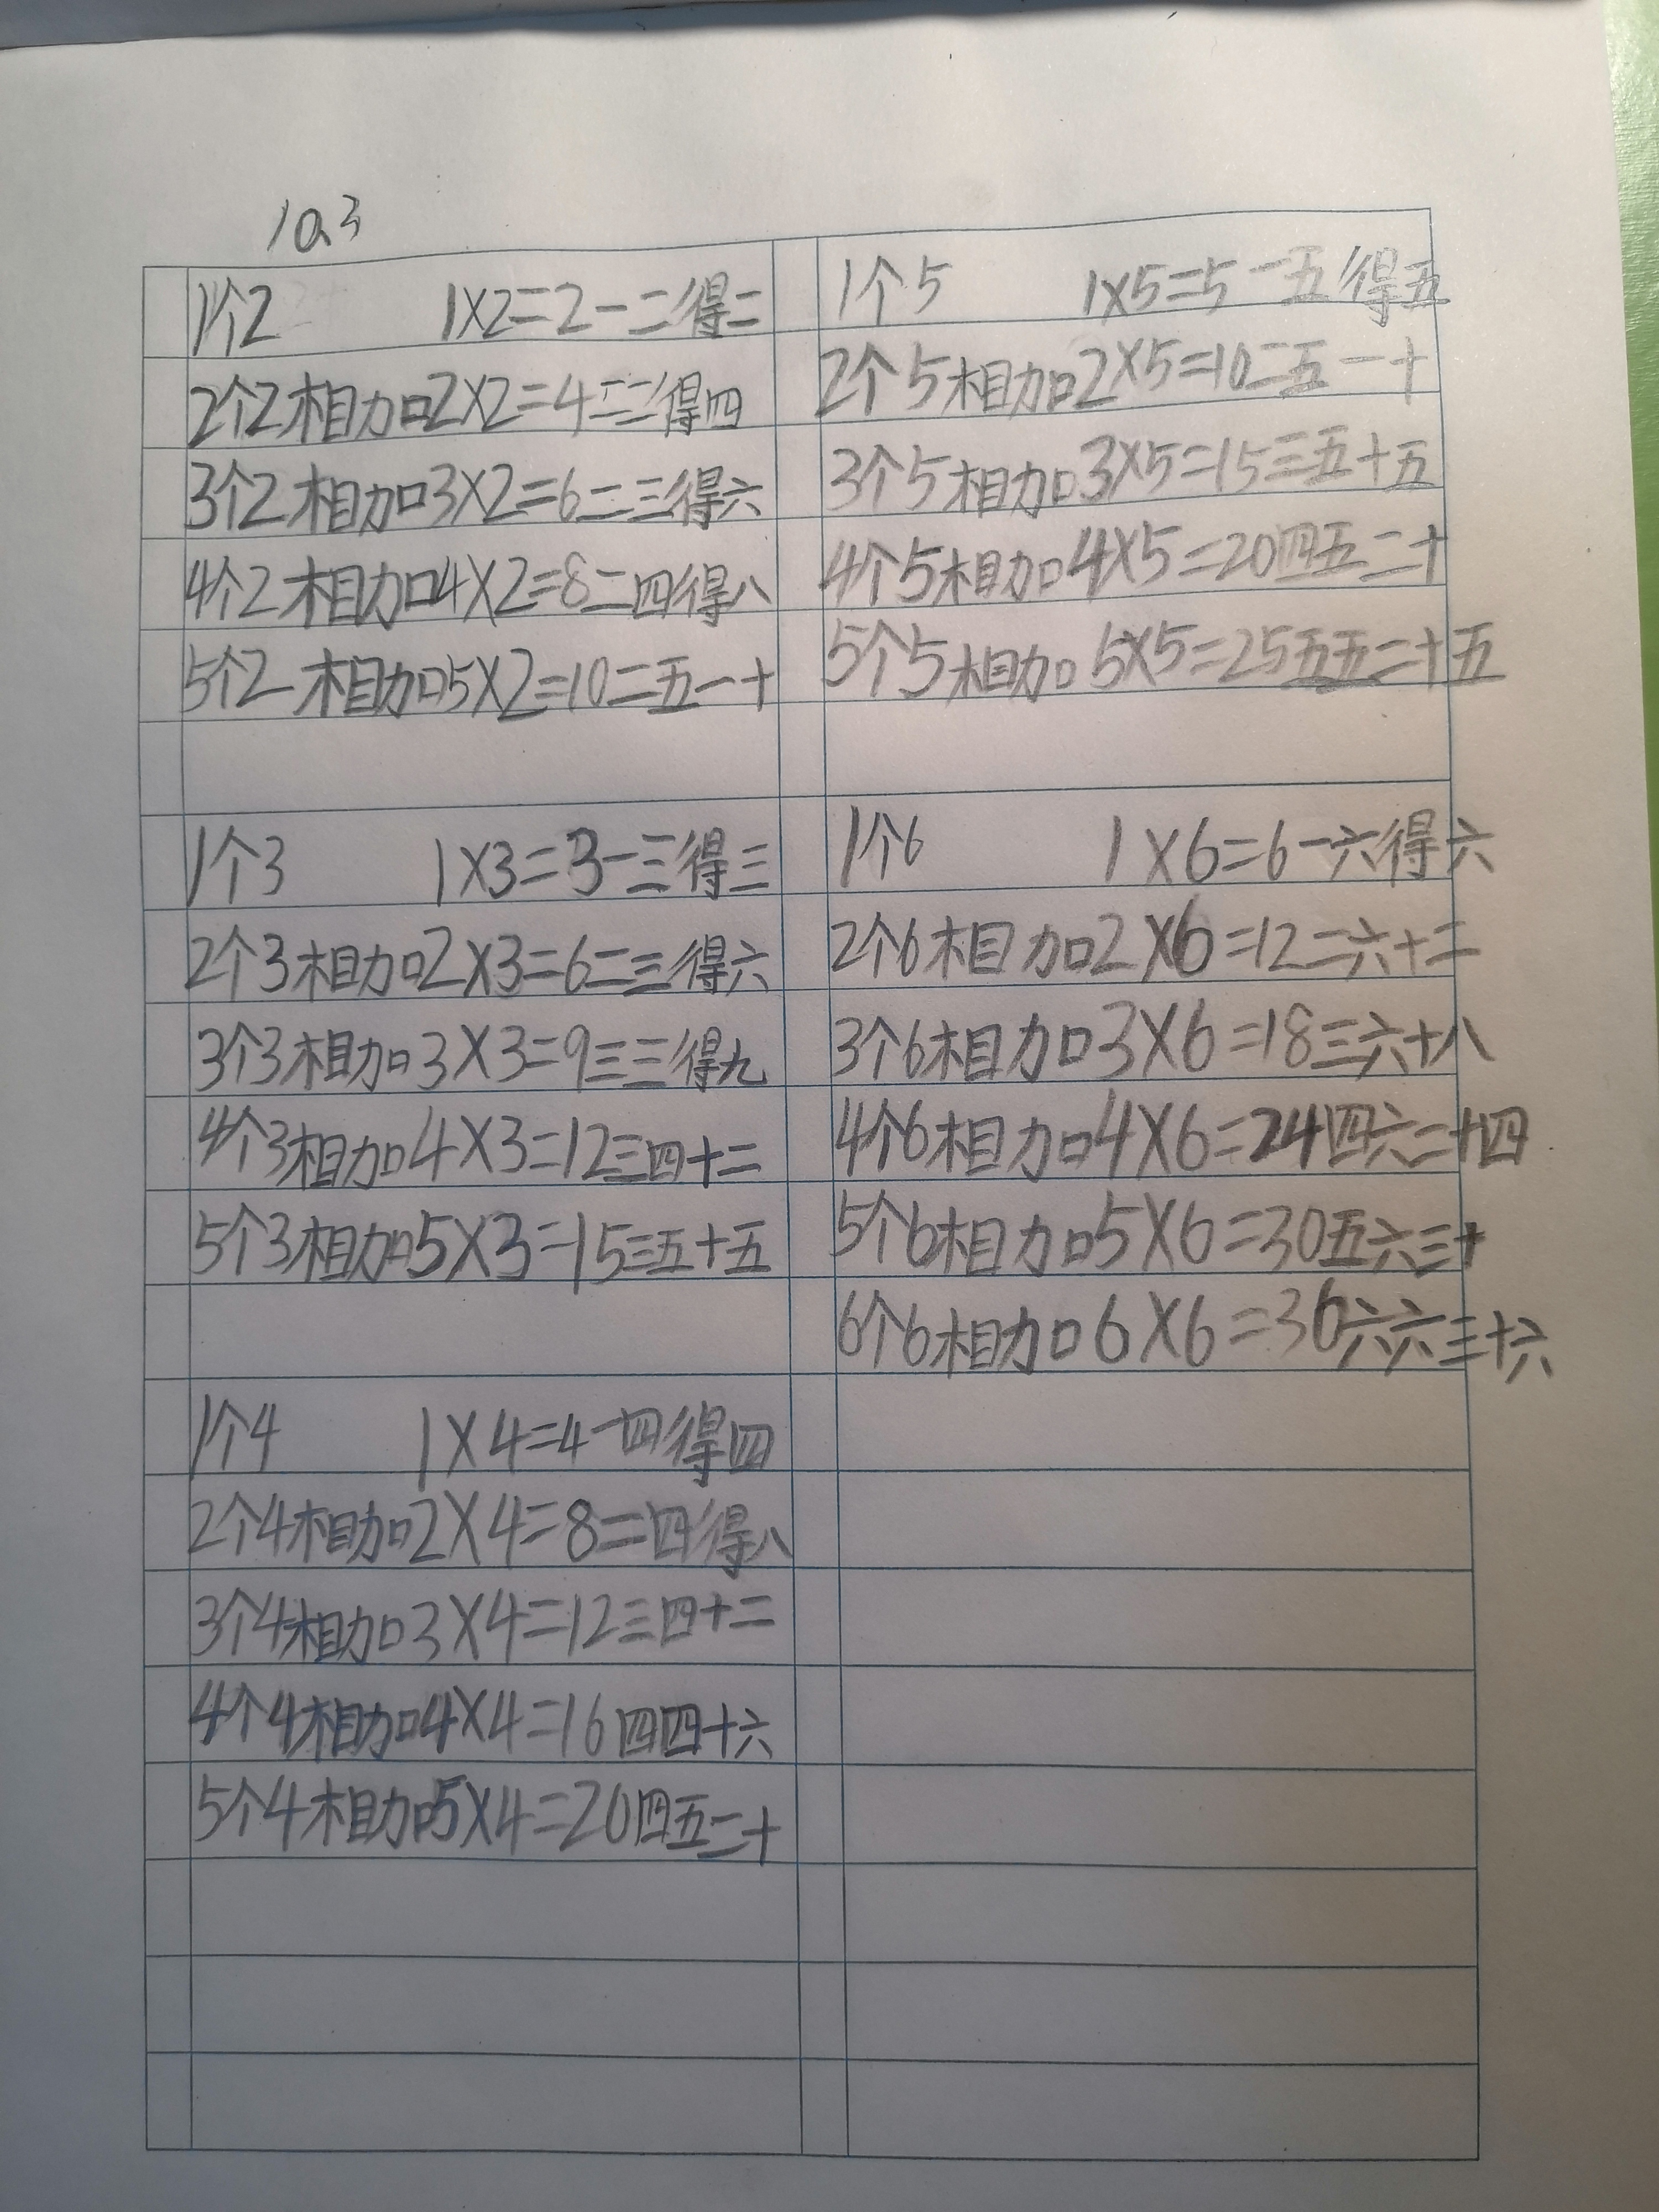 10.3
1个2 1×2=2一二得二
2个2相加2×2=4二二得四
3个2相加3×2=6二三得六
4个2相加4×2=8二四得八
5个2相加5×2=10二五一十
1个3 1×3=3一三得三
2个3相加2×3=6二三得六
3个3相加3×3=9三三得九
4个3相加4×3=12三四十二
5个3相加5×3=15三五十五
1个4 1×4=4一四得四
2个4相加2×4=8二四得八
3个4相加3×4=12三四十二
4个4相加4×4=16四四十六
5个4相加5×4=20四五二十
1个5 1×5=5一五得五
2个5相加2×5=10二五一十
3个5相加3×5=15三五十五
4个5相加4×5=20四五二十
5个5相加5×5=25五五二十五
1个6 1×6=6一六得六
2个6相加2×6=12二六十二
3个6相加3×6=18三六十八
4个6相加4×6=24四六二十四
5个6相加5×6=30五六三十
6个6相加6×6=36六六三十六